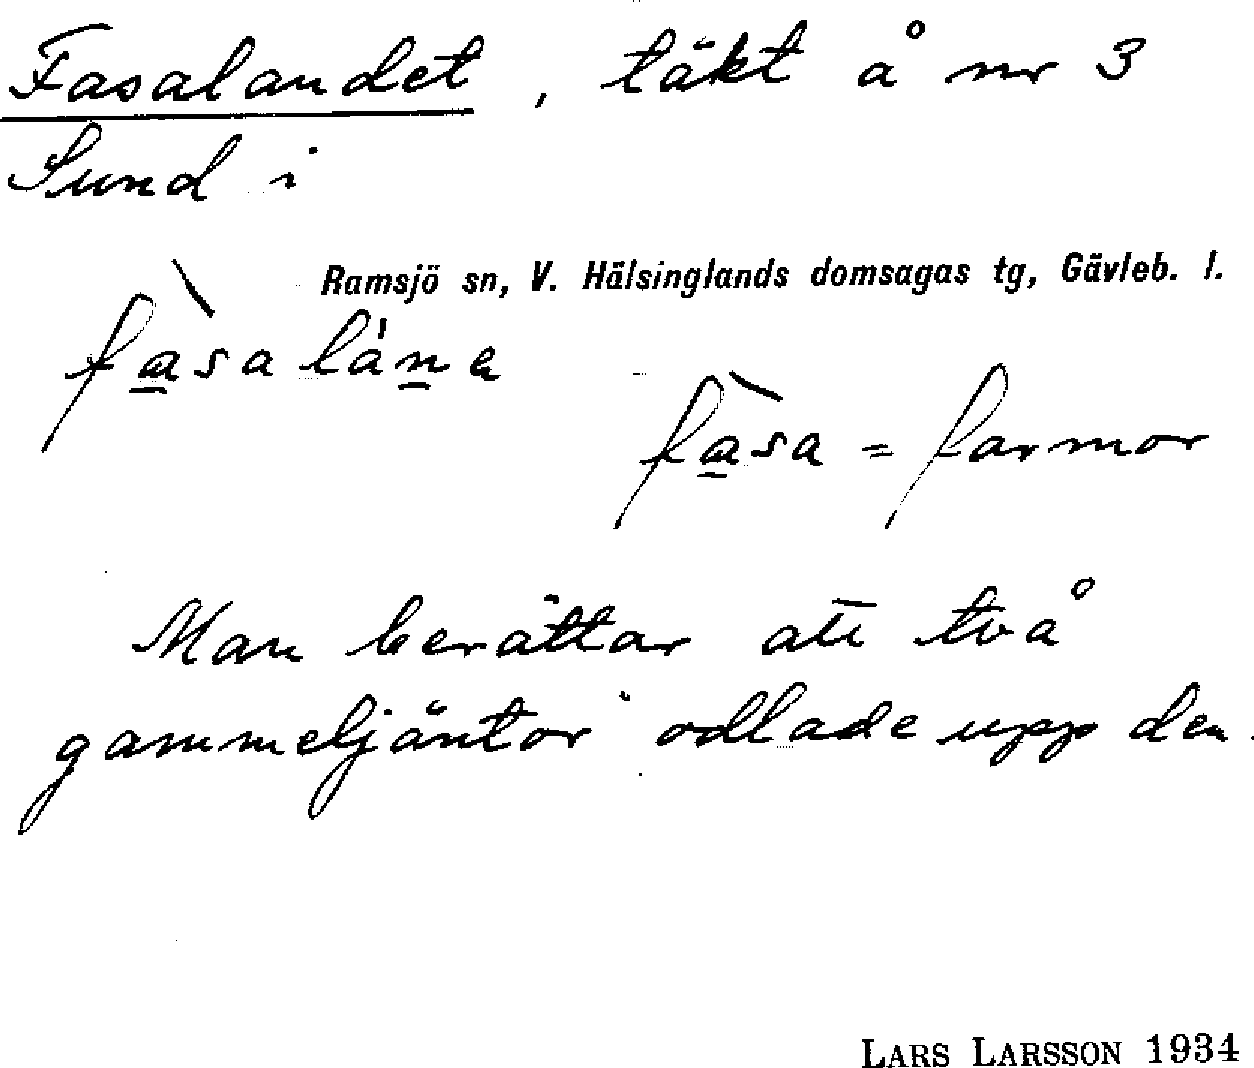 Fasalandet, täkt å nr 3
Sund i
Ramsjö sn, V. Hälsinglands domsagas tg, Gävleb. l.
fàsa lána
fàsa = farmor
Man berättar att två
gammeljäntor odlade upp den.
LARS LARSSON 1934